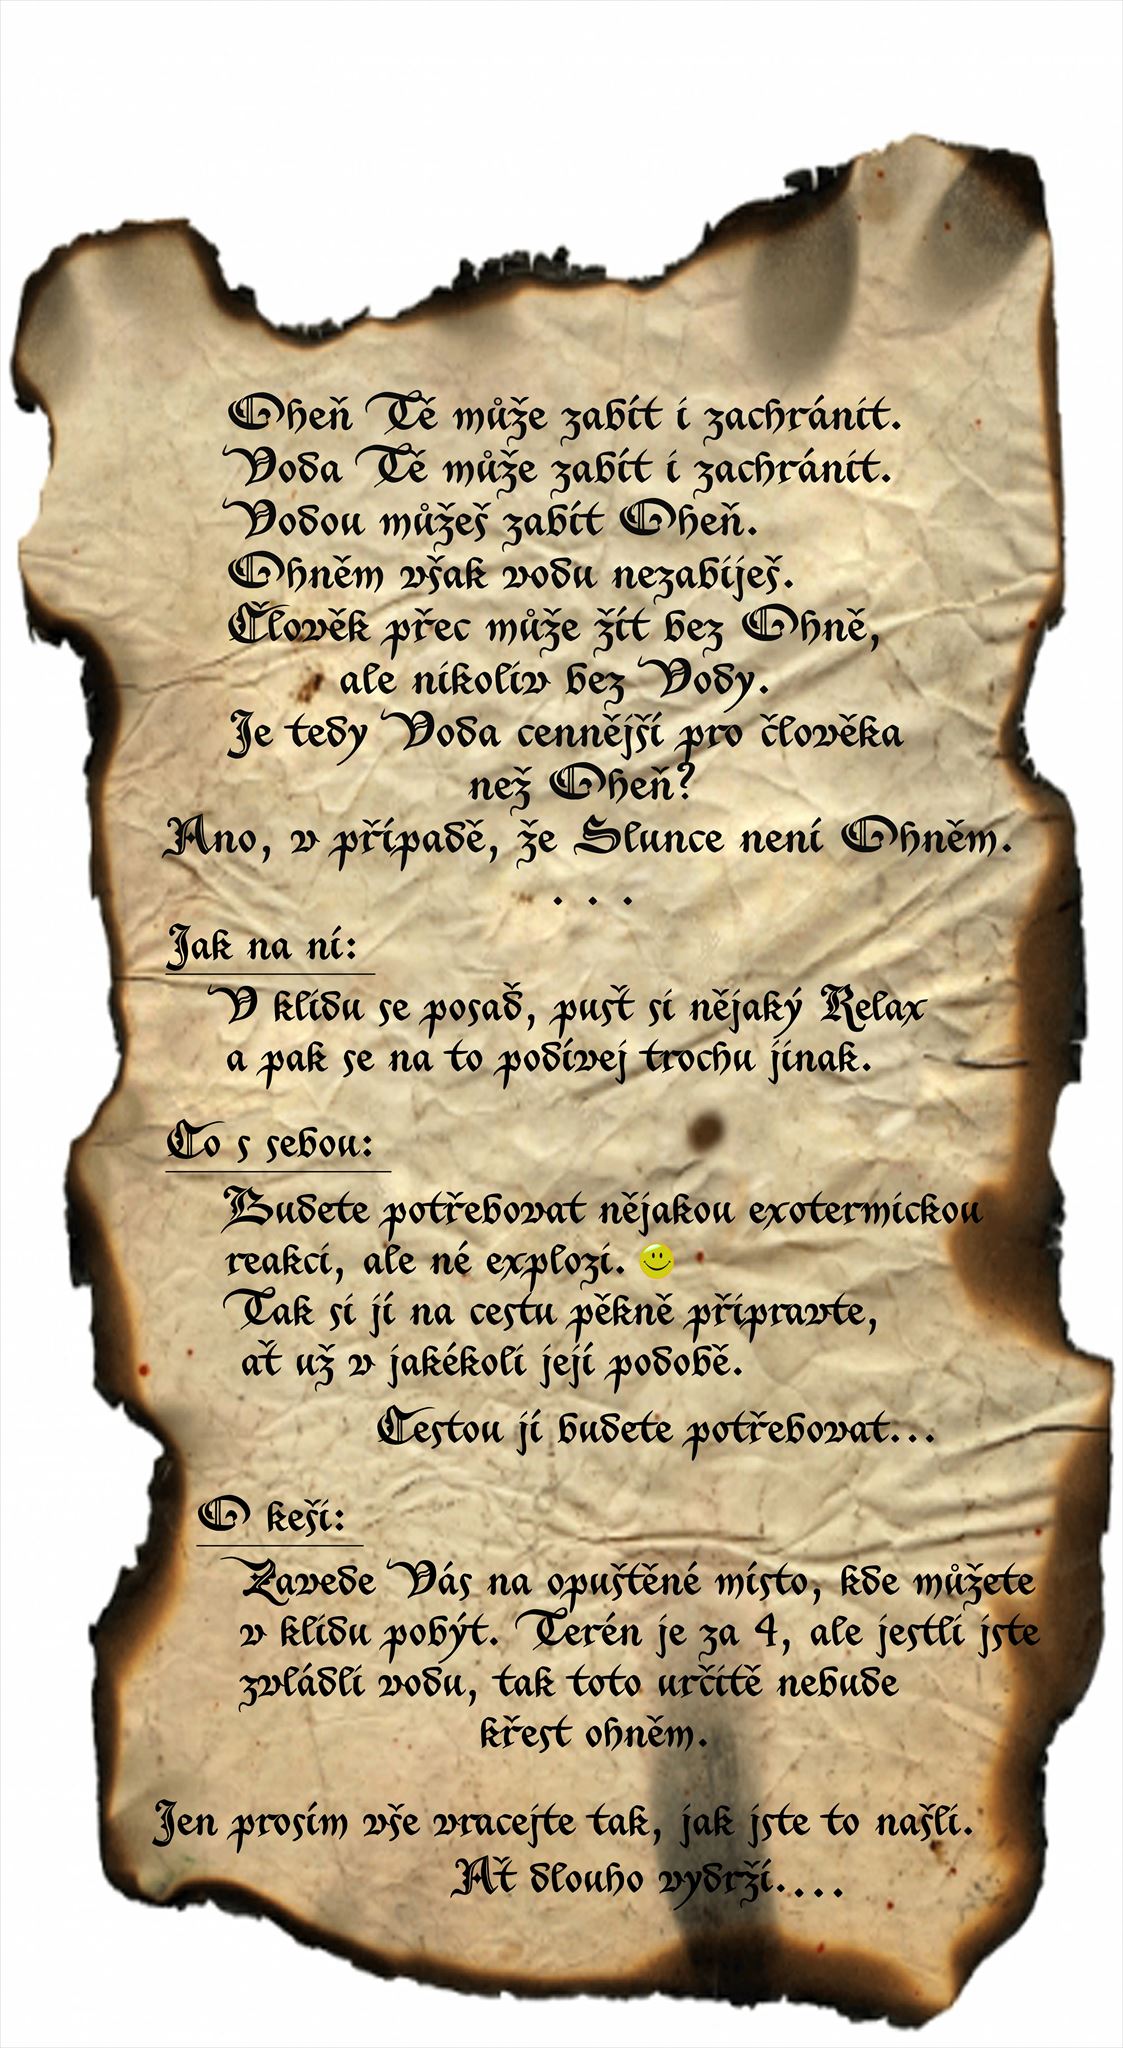 Oheň Tě může zabít i zachránit.
Voda Tě může zabít i zachránit.
Vodou můžeš zabít Oheň.
Ohněm však vodu nezabiješ.
Člověk přec může žít bez Ohně,
ale nikoliv bez Vody.
Je tedy Voda cennější pro člověka
než Oheň?
Ano, v případě, že Slunce není Ohněm.
. . .
Jak na ní:
V klidu se posaď, pusť si nějaký Relax
a pak se na to podívej trochu jinak.
Co s sebou:
Budete potřebovat nějakou exotermickou
reakci, ale né explozi. 🙂
Tak si jí na cestu pěkně připravte,
ať už v jakékoli její podobě.
Cestou jí budete potřebovat...
O keši:
Zavede Vás na opuštěné místo, kde můžete
v klidu pobýt. Terén je za 4, ale jestli jste
zvládli vodu, tak toto určitě nebude
křest ohněm.
Jen prosím vše vracejte tak, jak jste to našli.
Ať dlouho vydrží....